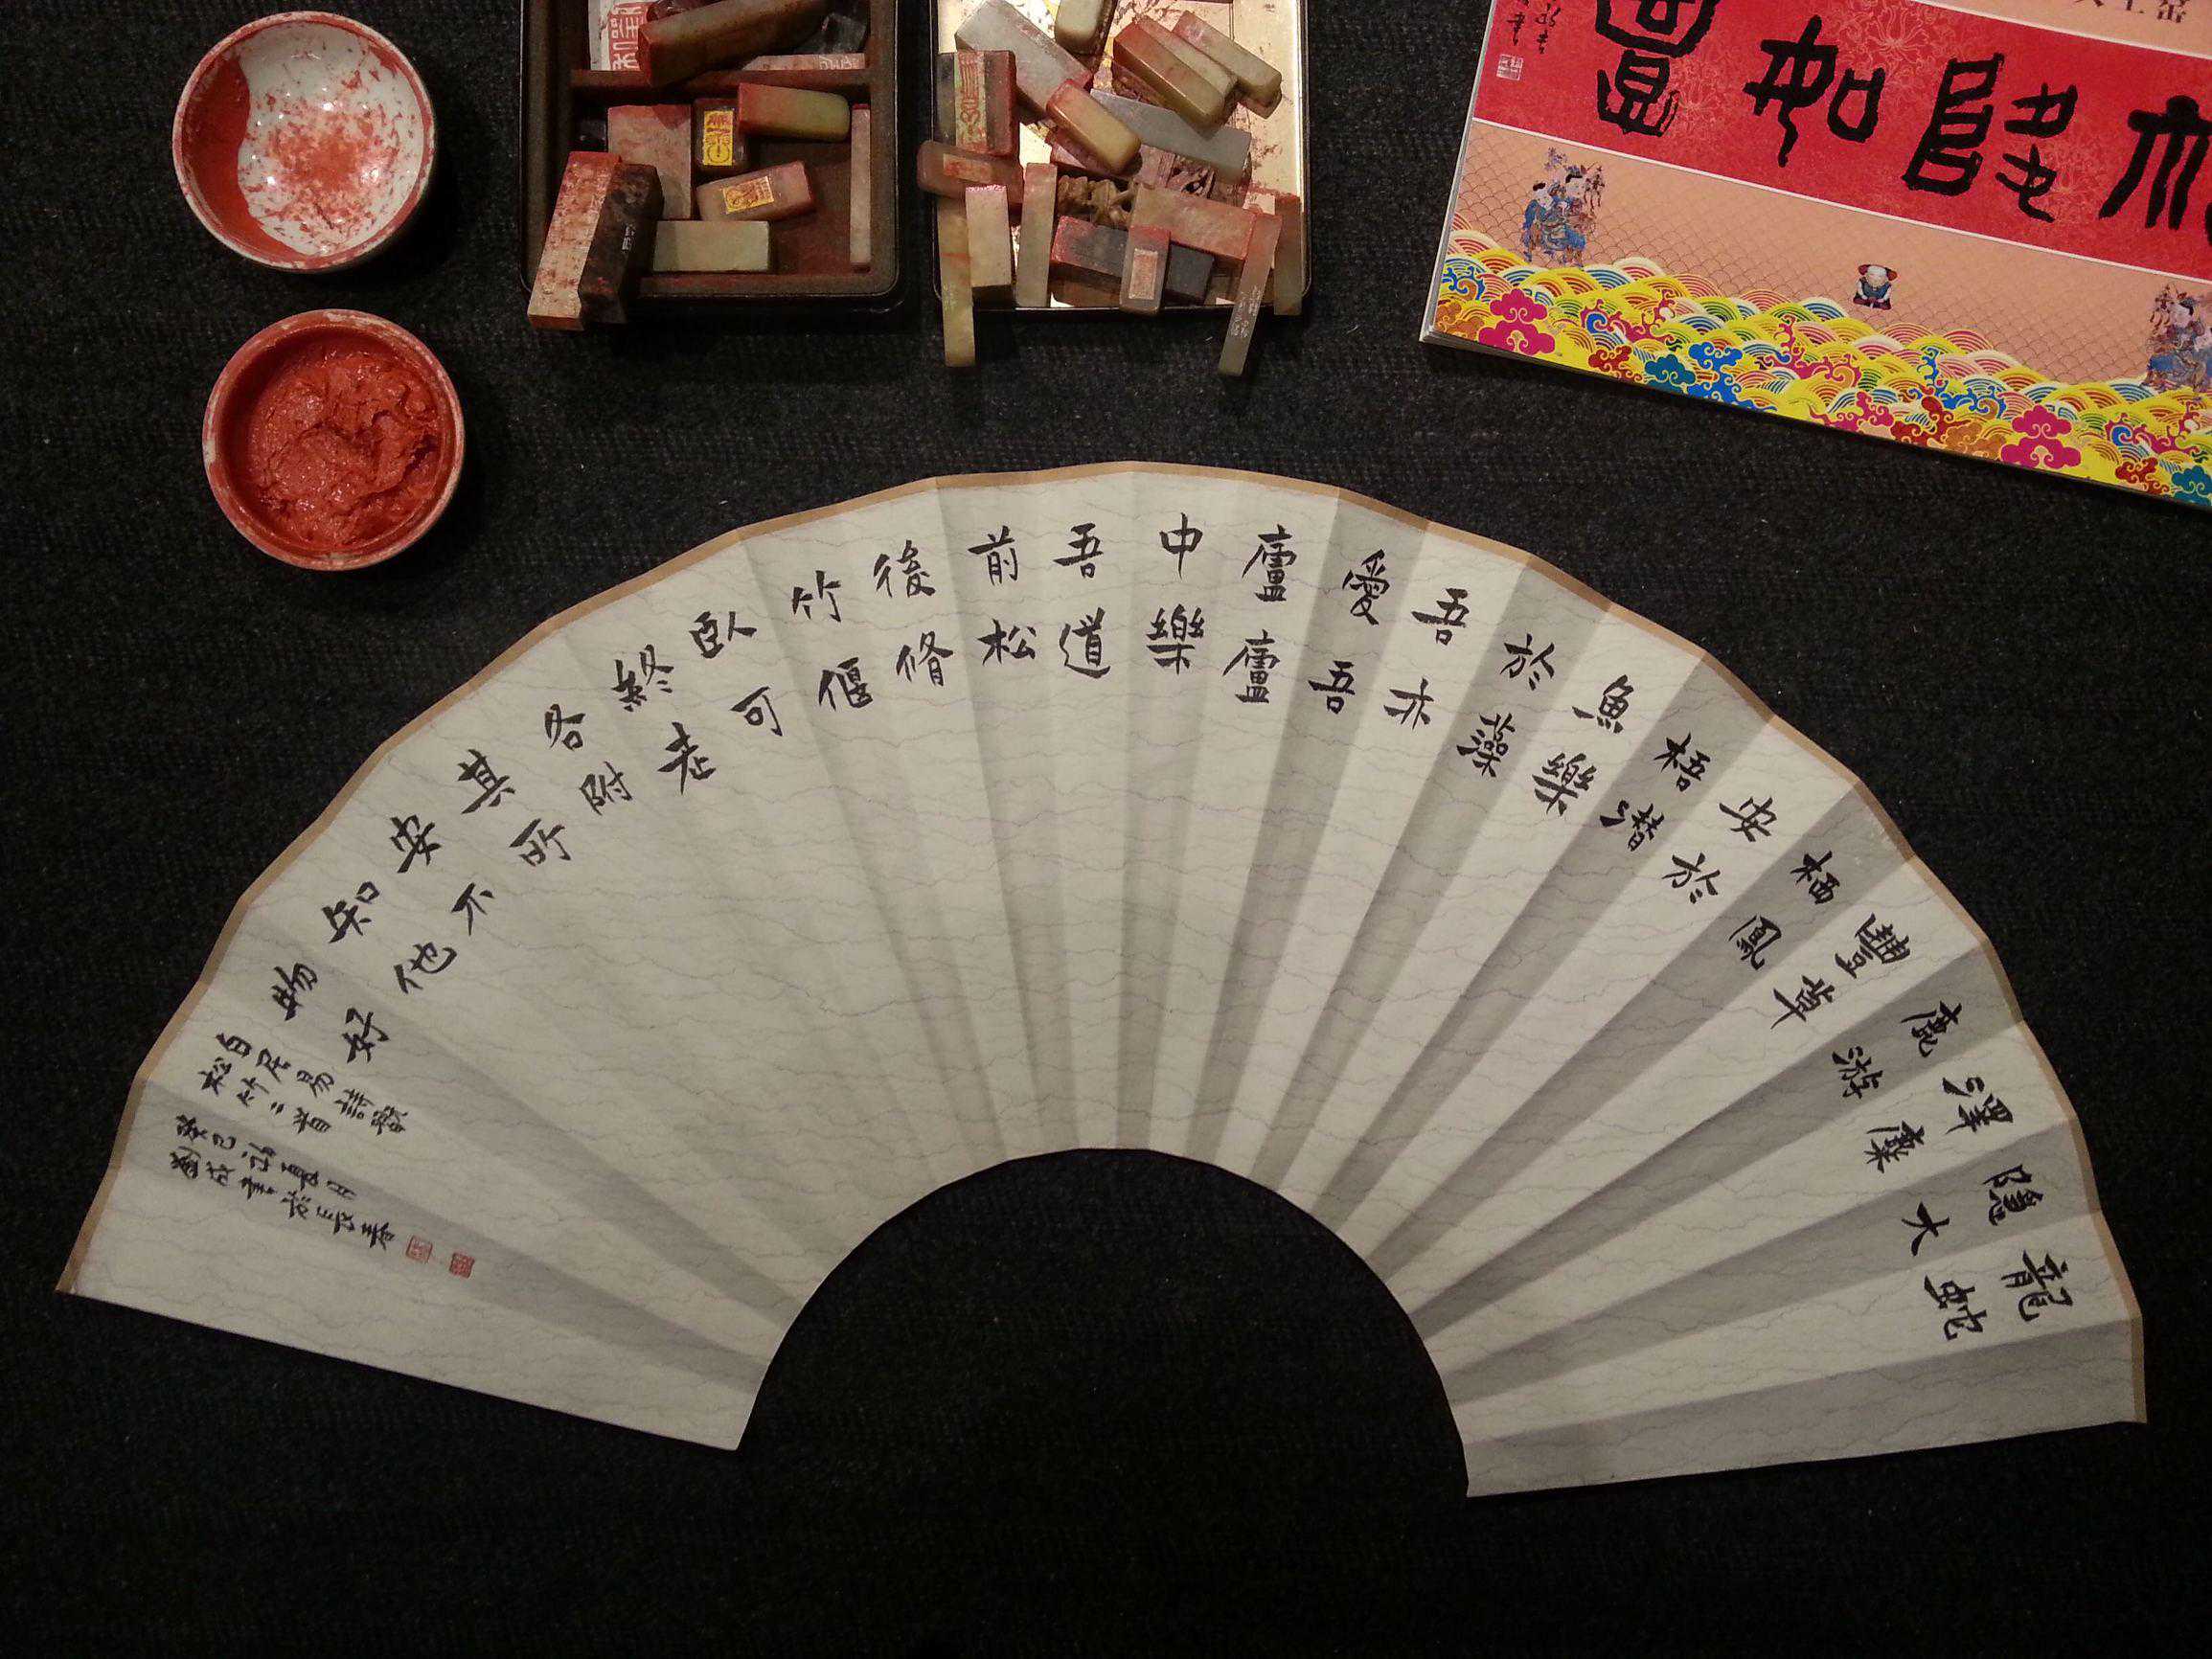 龍蛇
隱大
澤麋
鹿游
豐草
栖鳳
安於
梧潛
魚樂
於藻
吾亦
愛吾
廬廬
中樂
吾道
前松
後脩
竹偃
臥可
終老
各附
其所
安不
知他
物好
白居易詩翫
松竹二首
癸巳初夏月
劉成書於長春